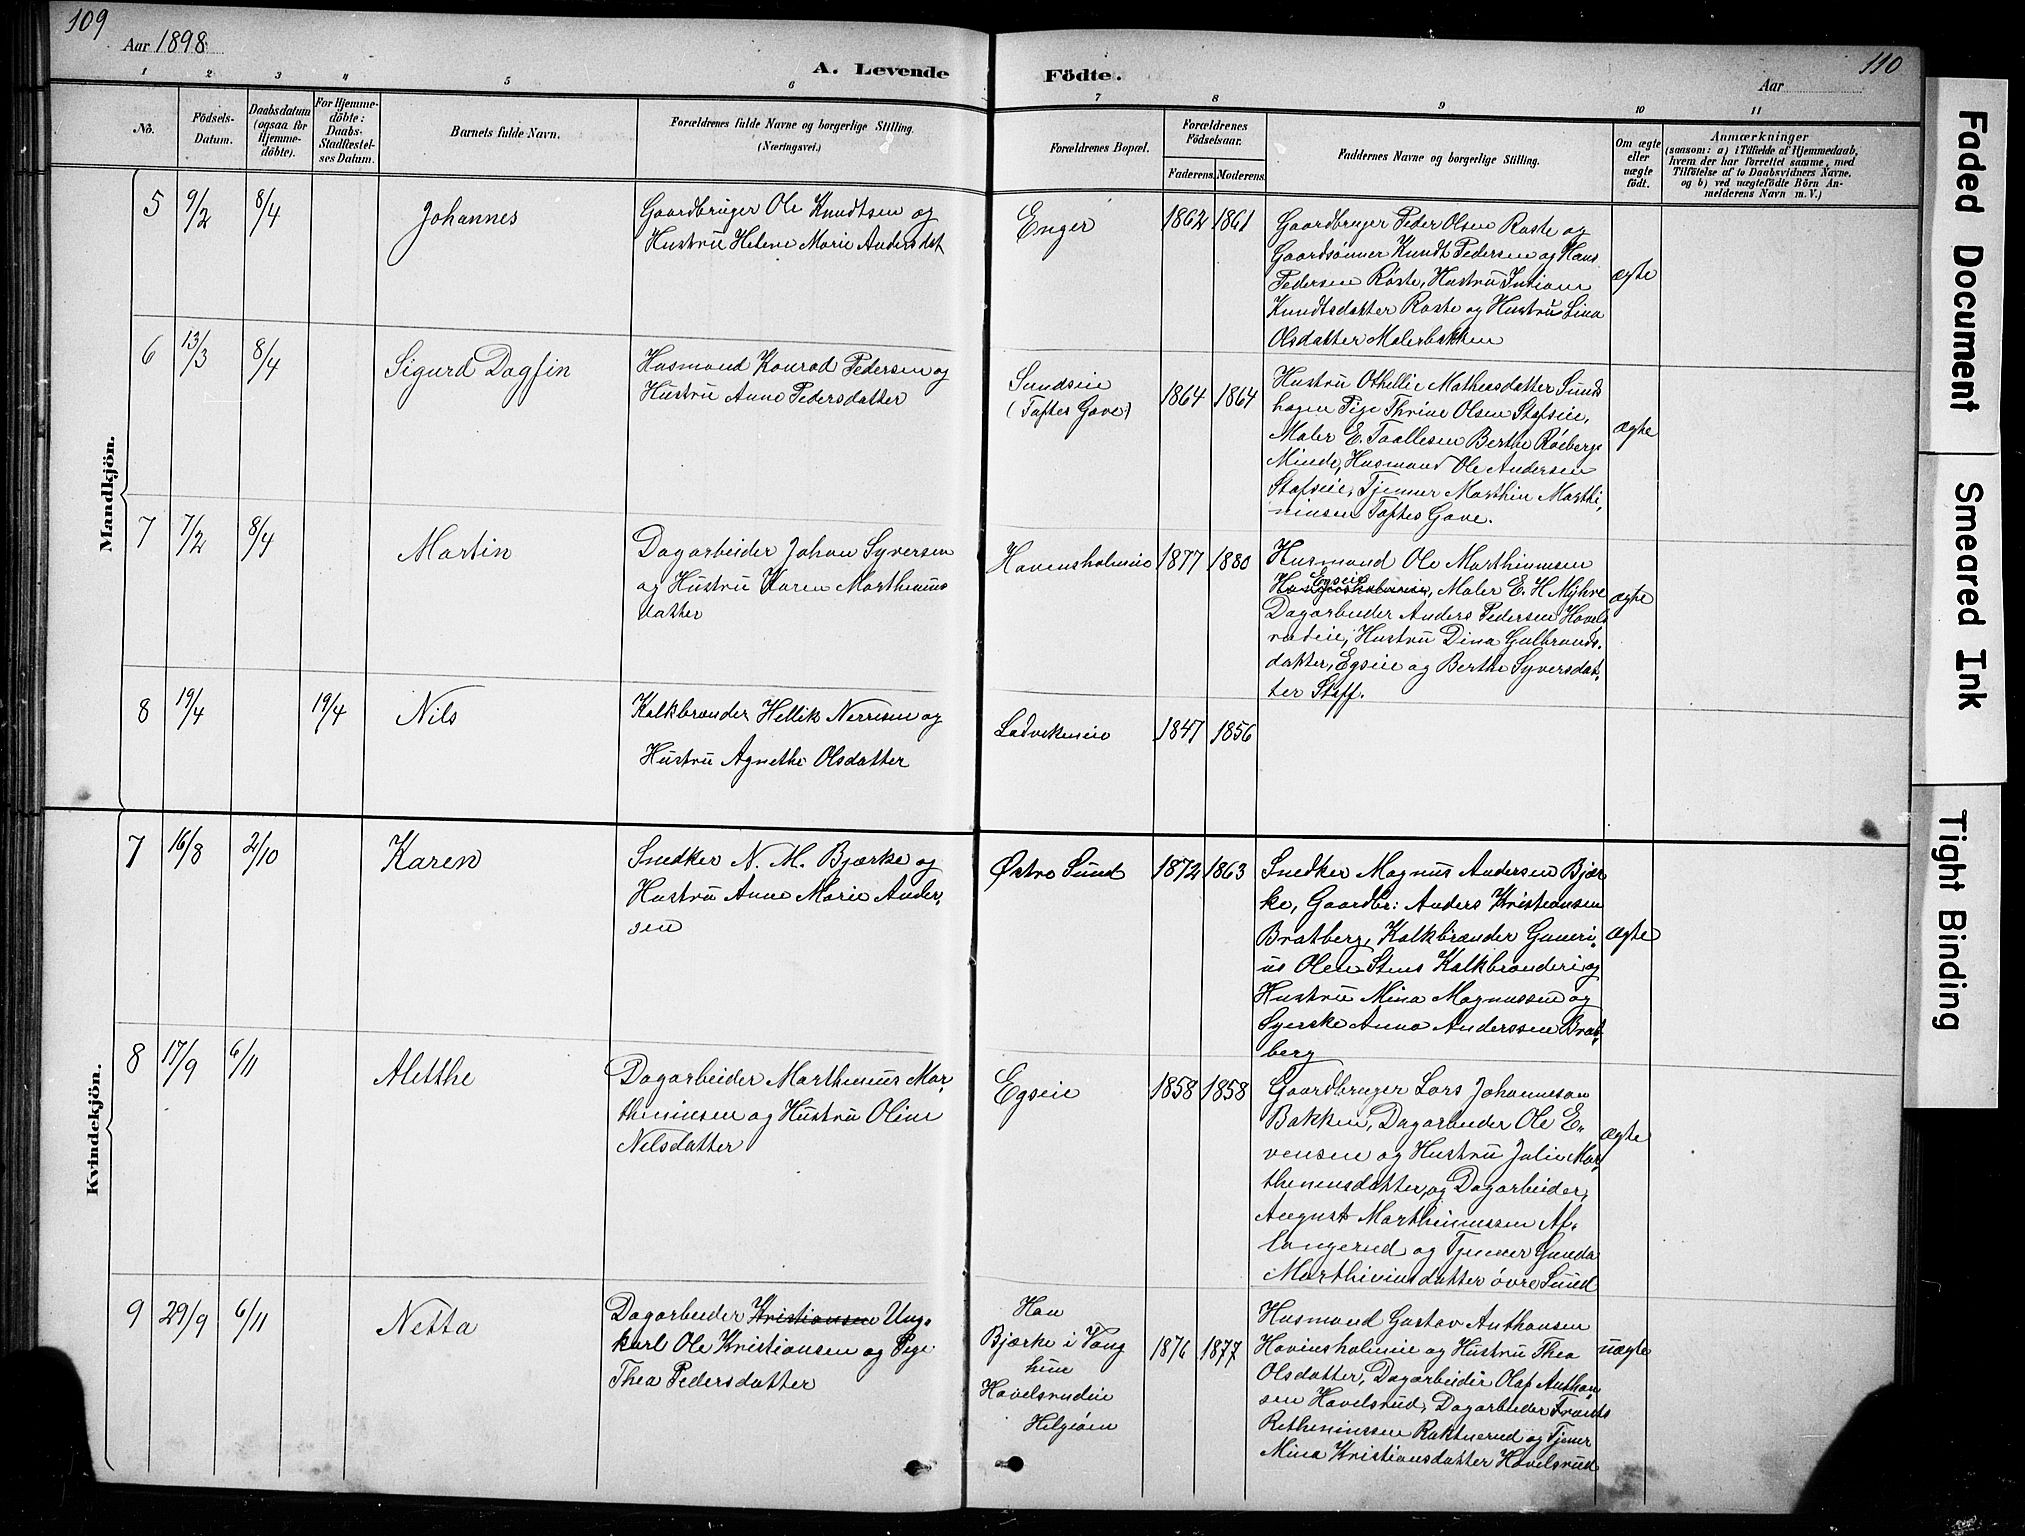 109
Aar 1898.
A. Levende
Födte.
Aar
110
1 2 3 4 5 6 7 8 9 10 11
No.
Födsels-
Datum.
Daabsdatum
(ogsaa for
Hjemme-
döbte).
For Hjemme-
döbte:
Daabs-
Stadfæstel-
ses Datum.
Barnets fulde Navn.
Forældrenes fulde Navne og borgerlige Stilling.
(Næringsvei.)
Forældrenes Bopæl.
Forældrenes
Födselsaar.
Faderens. Moderens.
Faddernes Navne og borgerlige Stilling.
Om ægte
eller
uægte
födt.
Anmærkninger
(saasom: a) i Tilfælde af Hjemmedaab,
hvem der har forrettet samme, med
Tilföielse af to Daabsvidners Navne,
og b) ved uægtefödte Börn An-
melderens Navn m. V.)
Mandkjön.
5 9/2 8/4 Johannes
Gaardbruger Ole Knudtsen og
Hustru Helene Marie Andersdt
Enger 1862 1861
Gaardbruger Peder Olsen Roste og
Gaardsønner Knudt Pedersen og Hans
Pedersen Røste, Hustru
Knudtsdatter Roste og Hustru Lina
Olsdatter Malerbakken
ægte
6 13/3 8/4 Sigurd Dagfin
Husmand Konrad Pedersen og
Hustru Anne Pedersdatter
Sundseie
(Toftes Gave) 1864 1864
Hustru Othellie Matheasdatter Sunds
hagen Pige Thrine Olsen Stafseie,
Maler E. Taallesen Berthe Røebergs
Minde, Husmand Ole Andersen
Stafseie, Tjenner Marthin Marthi,
ninsen Toftes Gave.
ægte
7 7/2 8/4 Martin
Dagarbeider Johan Syversen
og Hustru Karen Marthenius
datter
Hovinsholmeie 1877 1880
Husmand Ole Marthinusen
Egseie
Hovinsholmeie, Maler E. H. Myhre
Dagarbeider Anders Pedersen Hovels
rudeie, Hustru Dina Gulbrands.
datter, Egseie og Berthe Syversdat,
ter Staff.
ægte
8 19/4 19/4 Nils
Kalkbrænder Hellik Nerisen og
Hustru Agnethe Olsdatter
Ladvikeneie 1847 1856
Kvindekjön.
7 16/8 2/10 Karen
Snedker N. M. Bjærke og
Hustru Anne Marie Ander,
sen
Østre Sund 1872 1863
Snedker Magnus Andersen Bjær
ke, Gaardbr: Anders Kristiansen
Bratberg, Kalkbrænder Guneri,
us Olen Stens Kalkbrænderi og
Hustru Mina Magnussen og
Syerske Anna Anderssen Brat,
berg
ægte
8 17/9 6/11 Aletthe
Dagarbeider Marthenius Mar,
theninsen og Hustru Oline
Nilsdatter
Egseie 1858 1858
Gaardbruger Lars Johannesen
Bakken, Dagarbeider Ole E,
vensen og Hustru Julie Mar,
theniusdatter, og Dagarbeider,
August Marthinussen Af,
langerud og Tjenner Gunda
Marthiniusdatter övre Sund
ægte
9 29/9 6/11 Netta
Dagarbeider Kristiansen Ung,
karl Ole Kristiansen og Pige
Thea Pedersdatter
Han
Bjærke i Vang
hun
Hovelsrudeie
Helgiöen
1876 1877
Husmand Gustav Anthonsen
Hovinsholmeie og Hustru Thea
Olsdatter, Dagarbeider Olaf Anthon
sen Hovelsrud, Dagarbeider Frants
Retheniussen Raknerud og Tjener
Mina Kristiansdatter Hovelsrud
uægte
Faded Document
Smeared Ink
Tight Binding